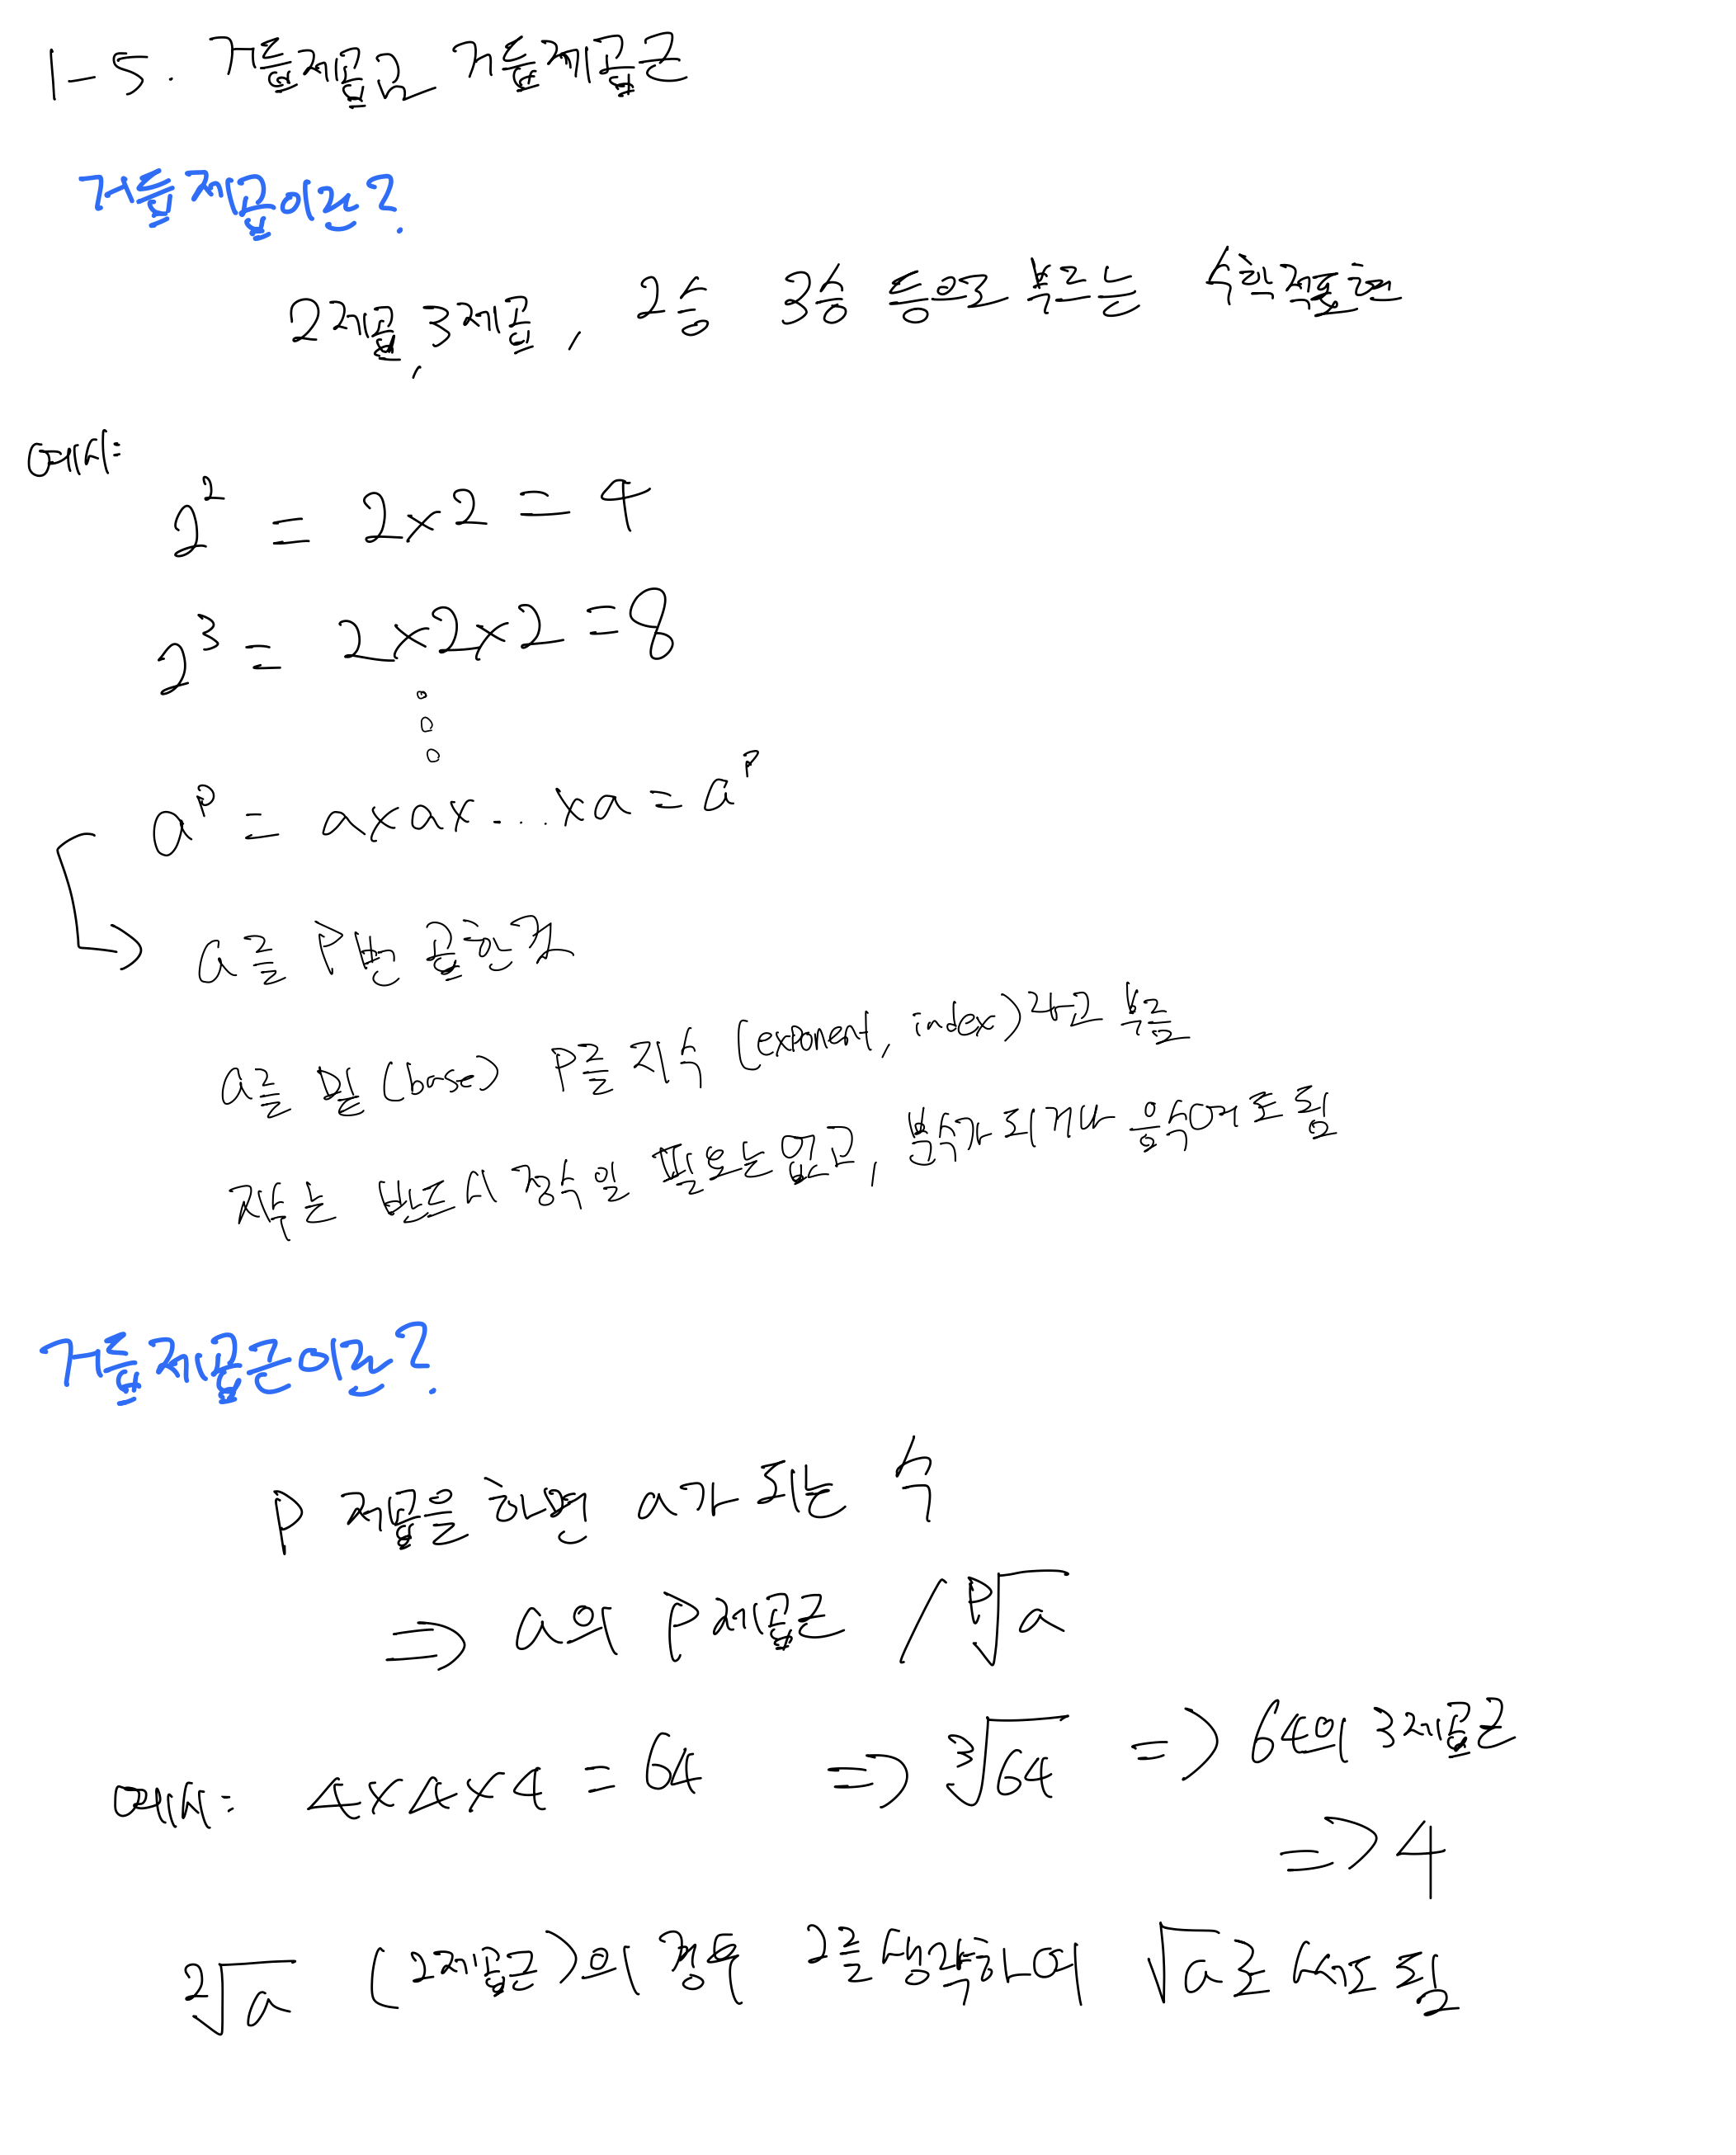 1-5. 거듭제곱과 거듭제곱근
거듭제곱이란?
2제곱, 3제곱, 2승 3승 등으로 부르는 수학적 표현
예시:
2² = 2×2 = 4
2³ = 2×2×2 = 8
aᵖ = a×a×...×a = aᵖ
a를 P번 곱한 것
a를 밑(base) P를 지수 (exponent, index)라고 부름
지수는 반드시 정수일 필요는 없고, 분수가 되거나 음수여도 됨
거듭제곱근이란?
P 제곱을 하면 a가 되는 수
⇒ a의 P제곱근 / ᵖ√a
예시: 4×4×4 = 64 ⇒ ³√64 => 64의 3제곱근
=> 4
²√a (2제곱근)의 경우 2를 생략하여 √a로 써도 됨